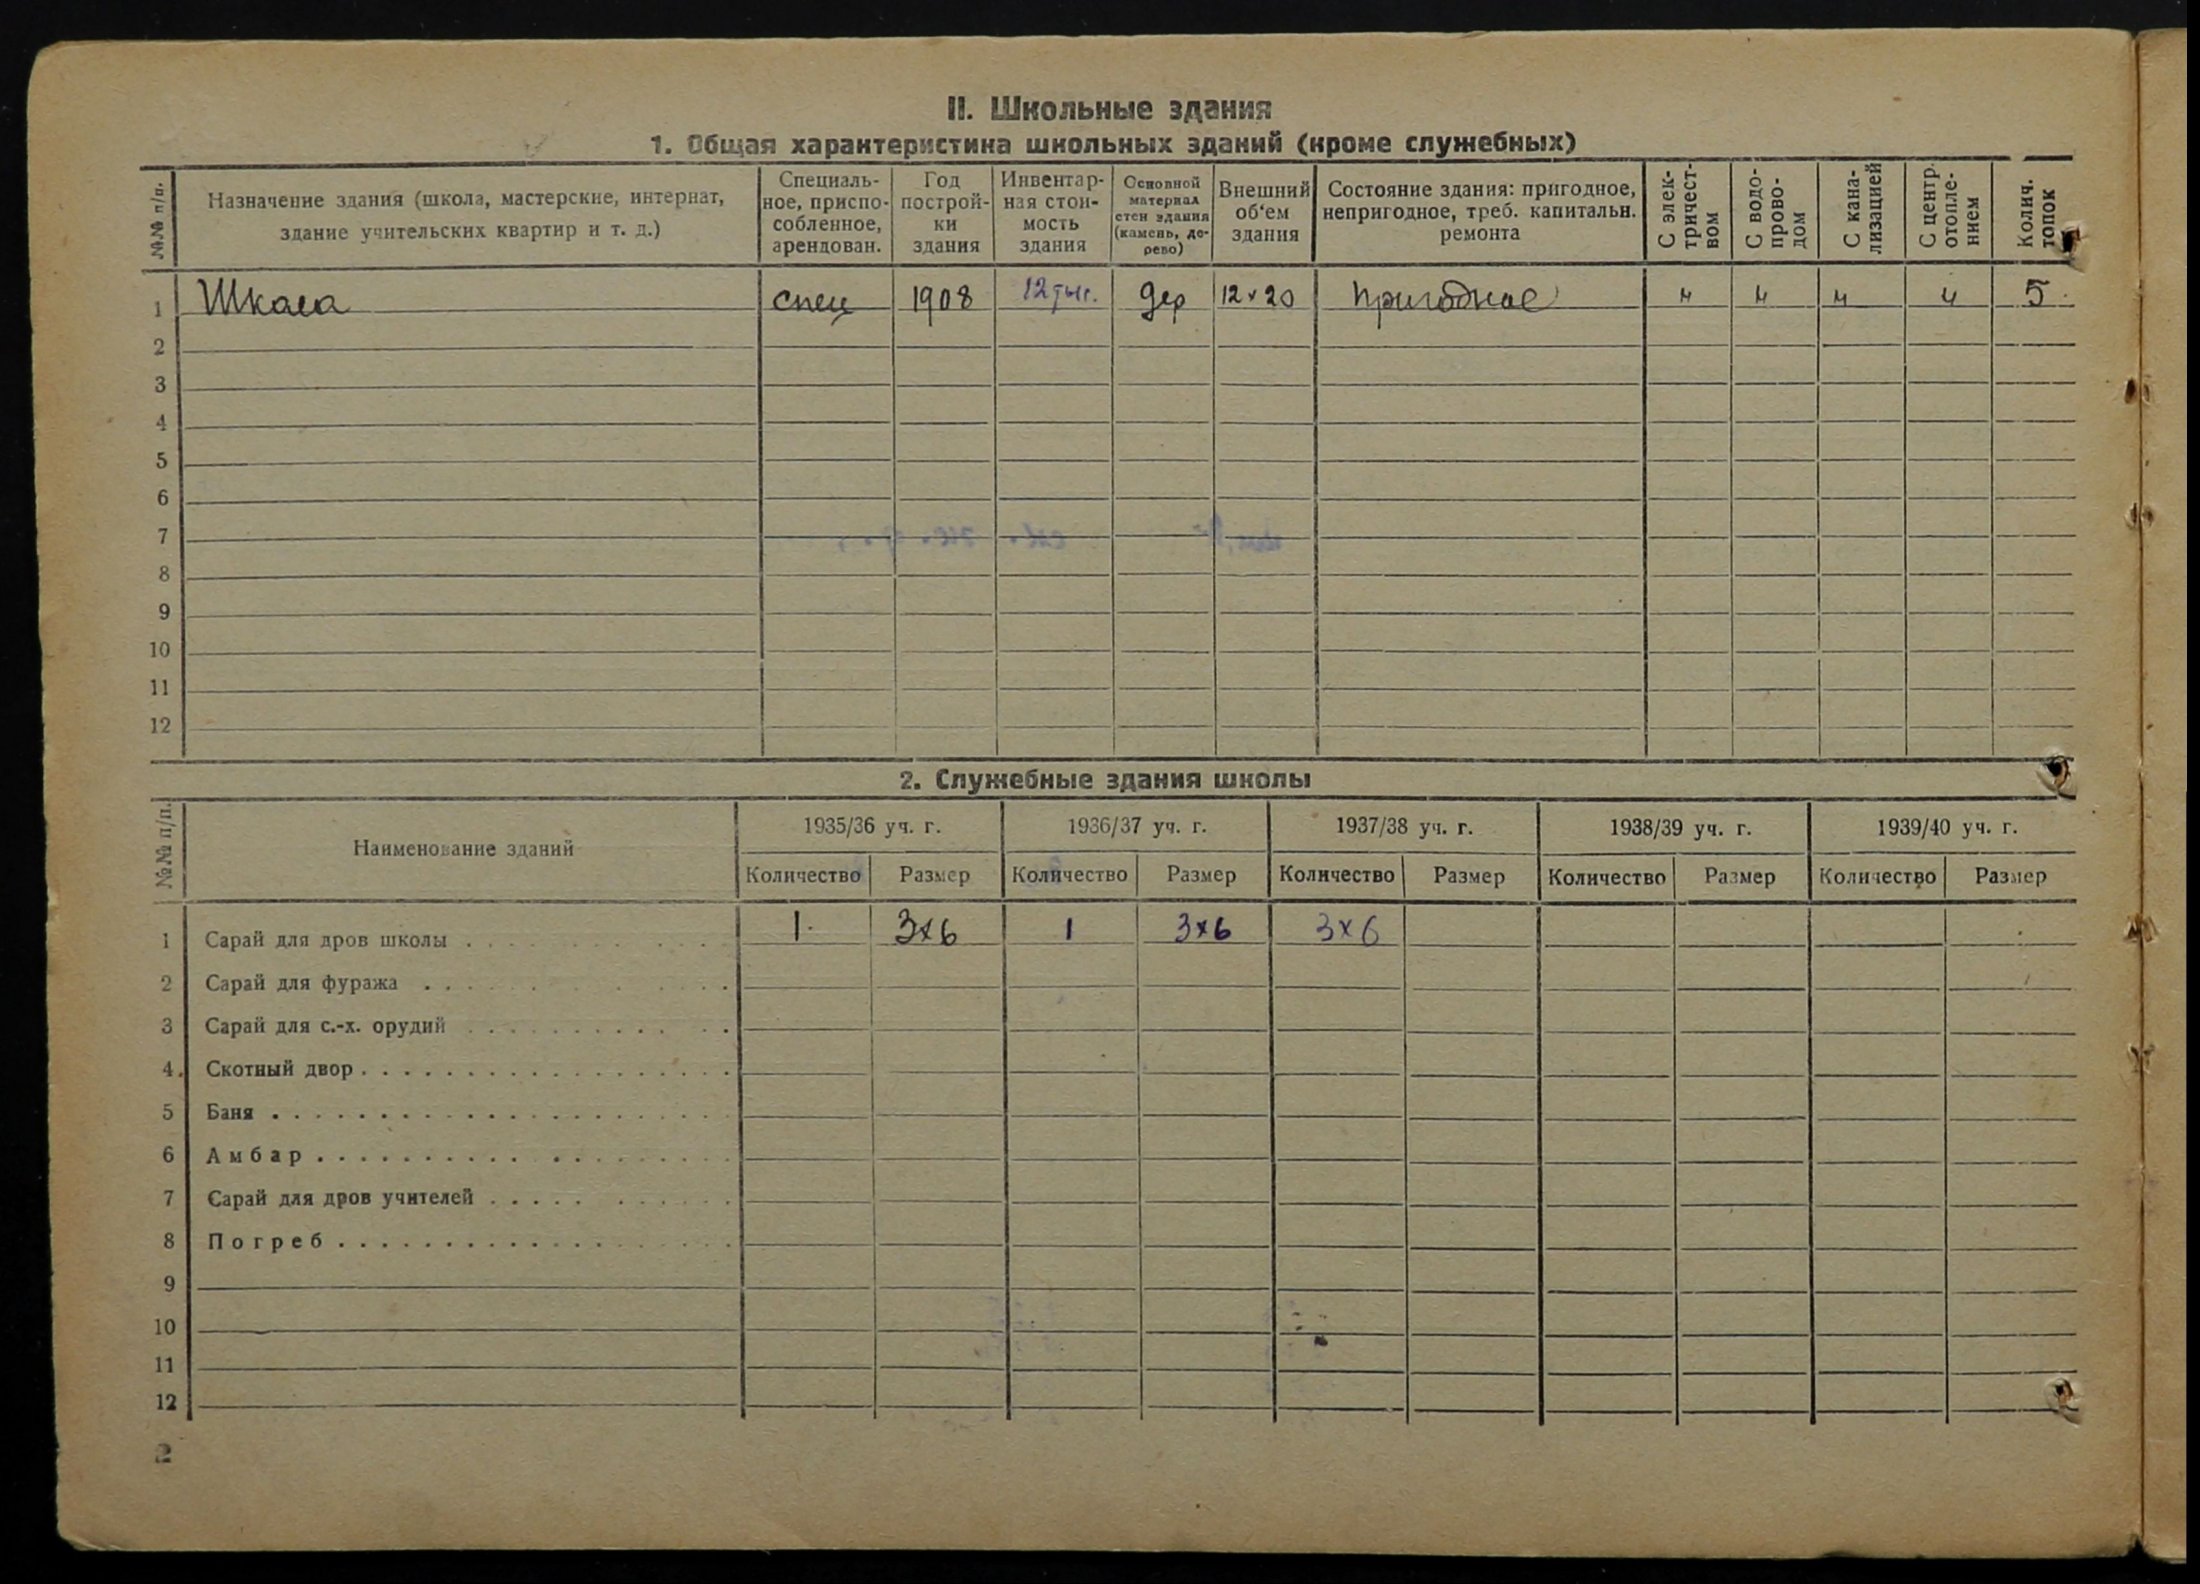 II. Школьные здания
1. Общая характеристика школьных зданий (кроме служебных)
№№ п/п.
Назначение здания (школа, мастерские, интернат,
здание учительских квартир и т. д.)
Специаль-
ное, приспо-
собленное,
арендован.
Год
построй-
ки
здания
Инвентар-
ная стои-
мость
здания
Основной
материал
стен здания
(камень, де-
рево)
Внешний
об'ем
здания
Состояние здания: пригодное,
непригодное, треб. капитальн.
ремонта
С элек-
тричест-
вом
С водо-
прово-
дом
С кана-
лизацией
С центр.
отопле-
нием
Колич.
топок
1 Школа спец 1908 12 тыс. дер 12×20 пригодное н н н н 5
2
3
4
5
6
7
8
9
10
11
12
2. Служебные здания школы
№№ п/п.
Наименование зданий
1935/36 уч. г. 1936/37 уч. г. 1937/38 уч. г. 1938/39 уч. г. 1939/40 уч. г.
Количество Размер Количество Размер Количество Размер Количество Размер Количество Размер
1 Сарай для дров школы 1 3×6 1 3×6 3×6
2 Сарай для фуража
3 Сарай для с.-х. орудий
4. Скотный двор
5 Баня
6 Амбар
7 Сарай для дров учителей
8 Погреб
9
10
11
12
2